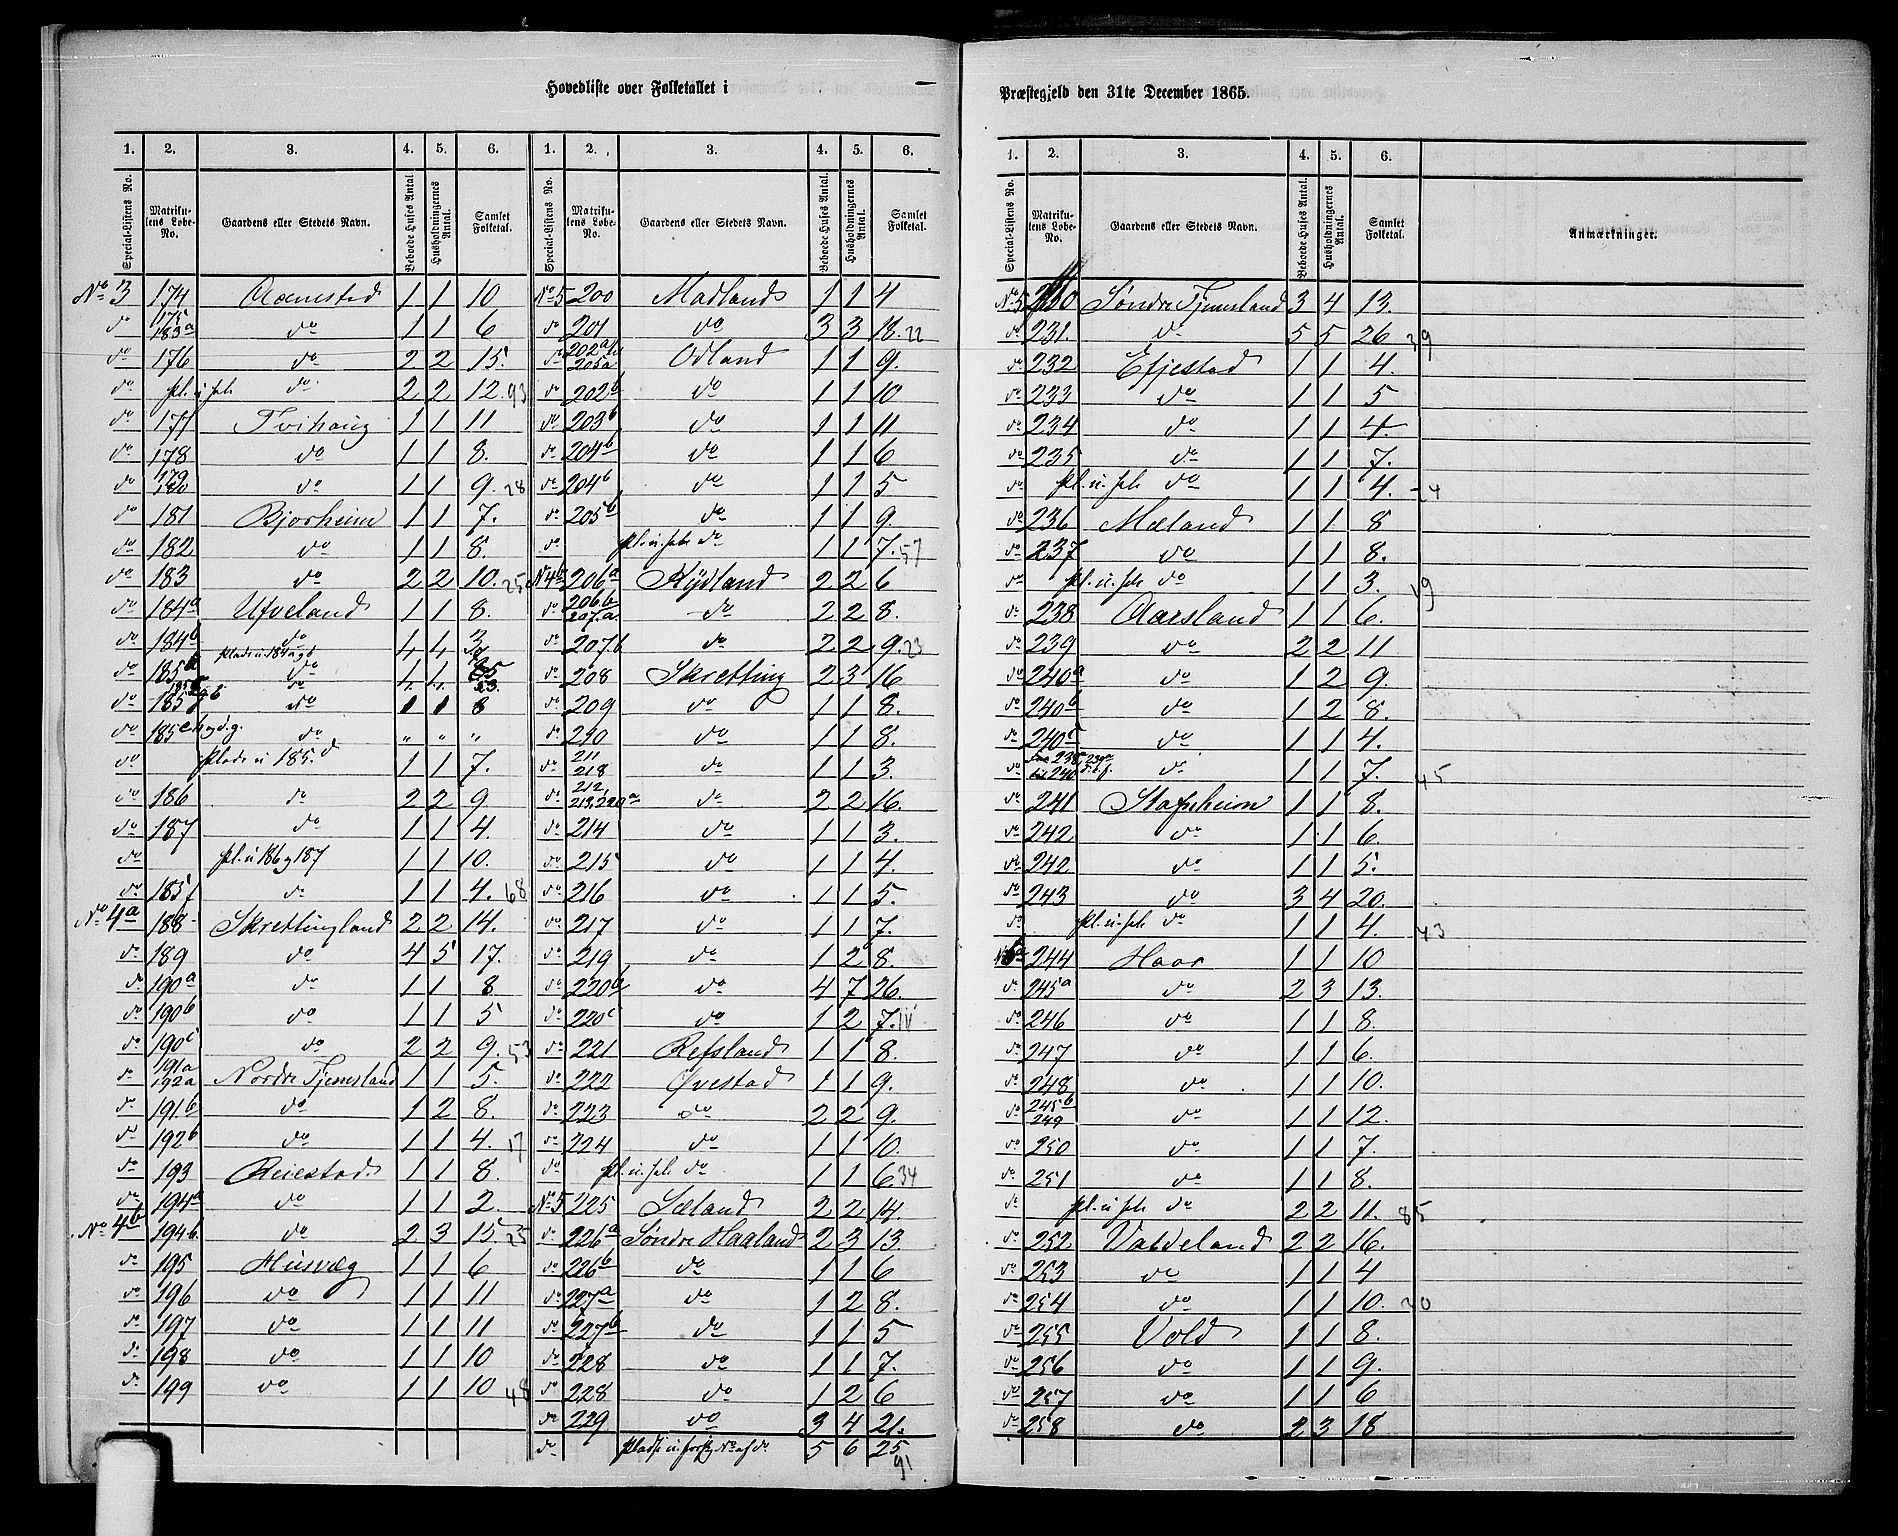 Hovedliste over Folketallet i
Præstegjeld den 31te December 1865.
1. 2. 3. 4. 5. 6. 1. 2. 3. 4. 5. 6.
Special-Listens No. Matrikulens Løbe-No. Gaardens eller Stedets Navn. Beboede Huses Antal. Husholdningernes Antal. Samlet Folketal. Special-Listens No. Matrikulens Løbe-No. Gaardens eller Stedets Navn. Beboede Huses Antal. Husholdningernes Antal. Samlet Folketal.
No 3 174 Aanestad 1 1 10
do 175 183a do 1 1 6
do 176 do 2 2 15.
do pl. u. fels do 2 2 12. 93
do 177 Tvihaug 1 1 11
do 178 do 1 1 8.
do 179 180 do 1 1 9. 28
do 181 Bjorheim 1 1 7.
do 182 do 1 1 8.
do 183 do 2 2 10. 25
do 184a Ufveland 1 1 8.
do 184b do
Plads u 184 a g b 4 4
do 185a do 4 4
do 185 do 1 1 8
do 185 do " " "
do Plads u 185.d 1 1 7.
do 186 do 2 2 9
do 187 do 1 1 4.
do pl. u 186 g 187 1 1 10.
do 185f do 1 1 4. 68
No 4a 188 Skrettingland 2 2 14.
do 189 do 4 5 17.
do 190a do 1 1 8
do 190b do 1 1 5
do 190c do 2 2 9. 53
do 191a 192a Nordre Tjemsland 1 1 5.
do 191b do 1 2 8.
do 192b do 1 1 4. 17
do 193 Reiestad 1 1 8.
do 194a do 1 1 2.
No 4b 194b do 2 3 15. 25
do 195 Husvæg 1 1 6
do 196 do 1 1 11
do 197 do 1 1 11
do 198 do 1 1 10
do 199 do 1 1 10 48
No 5 200 Madland 1 1 4
do 201 do 3 3 18. 22
do 202a 205a Odland 1 1 9.
do 202b do 1 1 10
do 203b do 1 1 11
do 204b do 1 1 6
do 204b do 1 1 5
do 205b do 1 1 9.
do pl. u. fels do 1 1 7. 57
No 4b 206a Rydland 2 2 6
do 206b 207.a do 2 2 8.
do 207b do 2 2 9. 23
do 208 Skretting 2 3 16
do 209 do 1 1 8.
do 210 do 1 1 8.
do 211 218 do 1 1 3.
do 212, 213, 220a do 2 2 16.
do 214 do 1 1 3.
do 215 do 1 1 4.
do 216 do 1 1 5.
do 217 do 1 1 7.
do 219 do 1 2 8.
do 220b do 4 7 26.
do 220c do 1 2 7.
do 221 Refsland 1 1 8.
do 222 Øvestad 1 1 9.
do 223 do 2 2 9.
do 224 do 1 1 10.
do pl. u. fels do 1 1 6. 34
No 5 225 Sæland 2 2 14.
do 226a Søndre Haaland 2 3 13.
do 226b do 1 1 6
do 227a do 1 2 8.
do 227b do 1 1 5
do 228 do 1 1 7.
do 228 do 1 2 6
do 229 do 3 4 21.
do 5 6 25
91
1. 2. 3. 4. 5. 6.
Special-Listens No. Matrikulens Løbe-No. Gaardens eller Stedets Navn. Beboede Huses Antal. Husholdningernes Antal. Samlet Folketal. Anmærkninger.
No 5 230 Søndre Tjemsland 3 4 13.
do 231. do 5 5 26 39
do 232 Efjestad 1 1 4.
do 233 do 1 1 5
do 234 do 1 1 4.
do 235 do 1 1 7.
do pl. u. fels do 1 1 4. 24
do 236 Mæland 1 1 8
do 237 do 1 1 8.
do pl. u. fels do 1 1 3. 19
do 238 Aarsland 1 1 6.
do 239 do 2 2 11
do 240a do 1 2 9.
do 240b do 1 2 8.
do 240c do 1 1 4.
do do 1 1 7. 45
do 241 Stafnheim 1 1 8.
do 242 do 1 1 6.
do 242 do 1 1 5.
do 243 do 3 4 20.
do pl. u. fels do 1 1 4. 43
244 Haar 1 1 10
do 245a do 2 3 13.
do 246 do 1 1 8.
do 247 do 1 1 6.
do 248 do 1 1 10.
do 245b 249 do 1 1 12.
do 250 do 1 1 7.
do 251 do 1 1 8.
do pl. u. fels do 2 2 11. 85
do 252 Valdeland 2 2 16.
do 253 do 1 1 4
do 254 do 1 1 10. 30
do 255 Vold 1 1 8.
do 256 do 1 1 9.
do 257 do 1 1 6
do 258 do 2 3 18